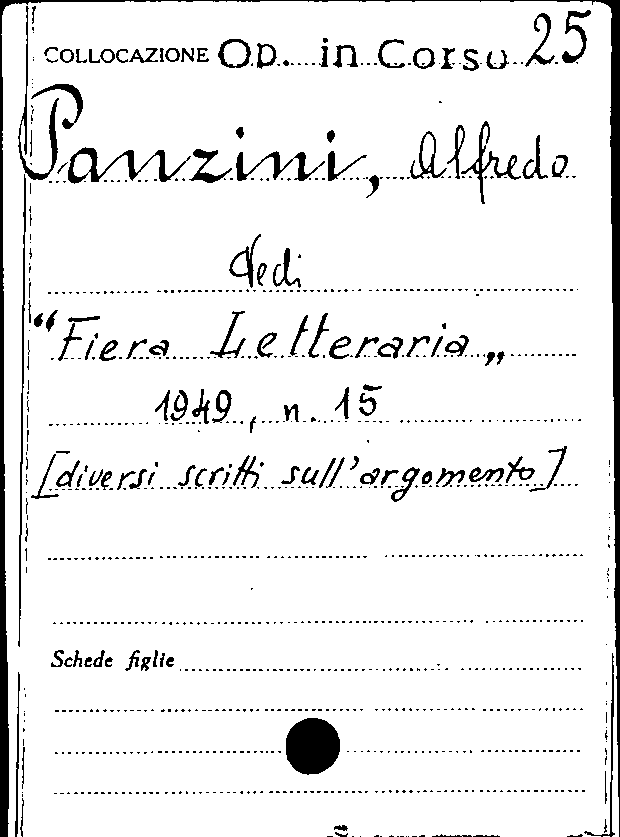 COLLOCAZIONE Op. in Corso 25
Panzini, Alfredo
Vedi
“Fiera Letteraria„
1949, n. 15
[diversi scritti sull'argomento]
Schede figlie